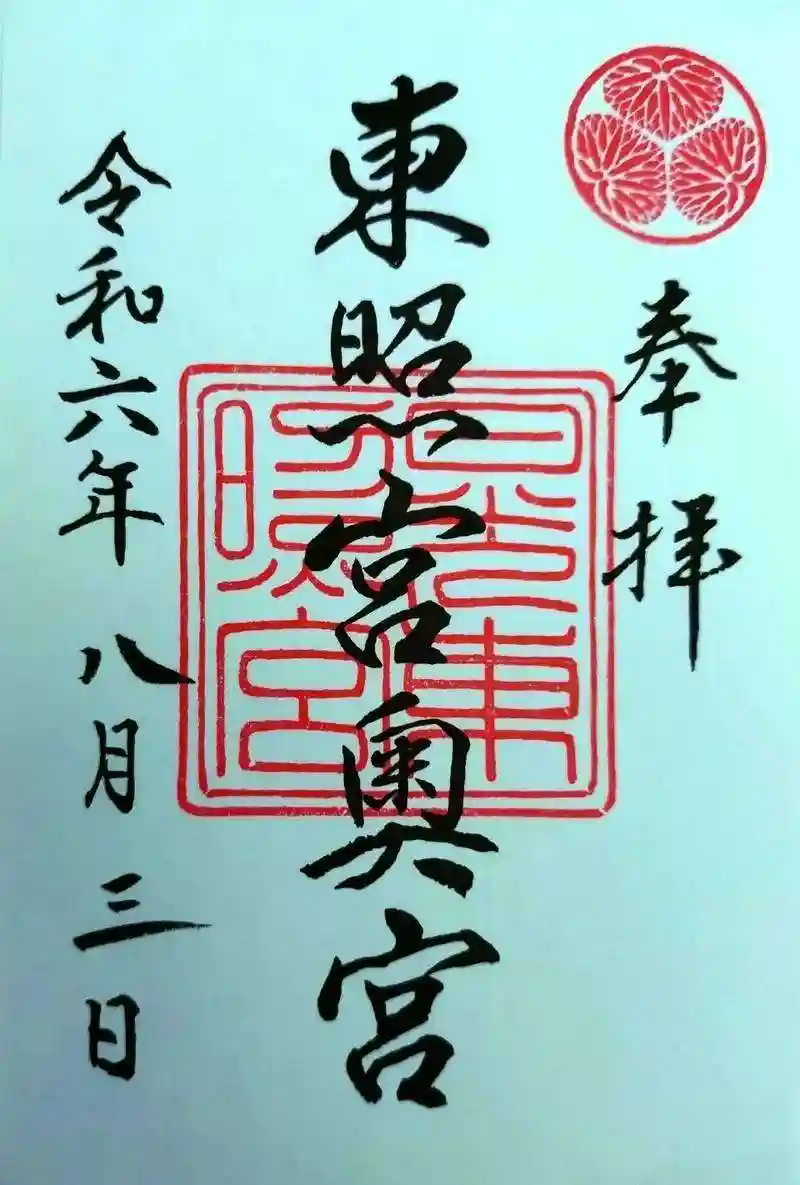 奉拝
東照宮奥宮
日光東照宮
令和六年八月三日